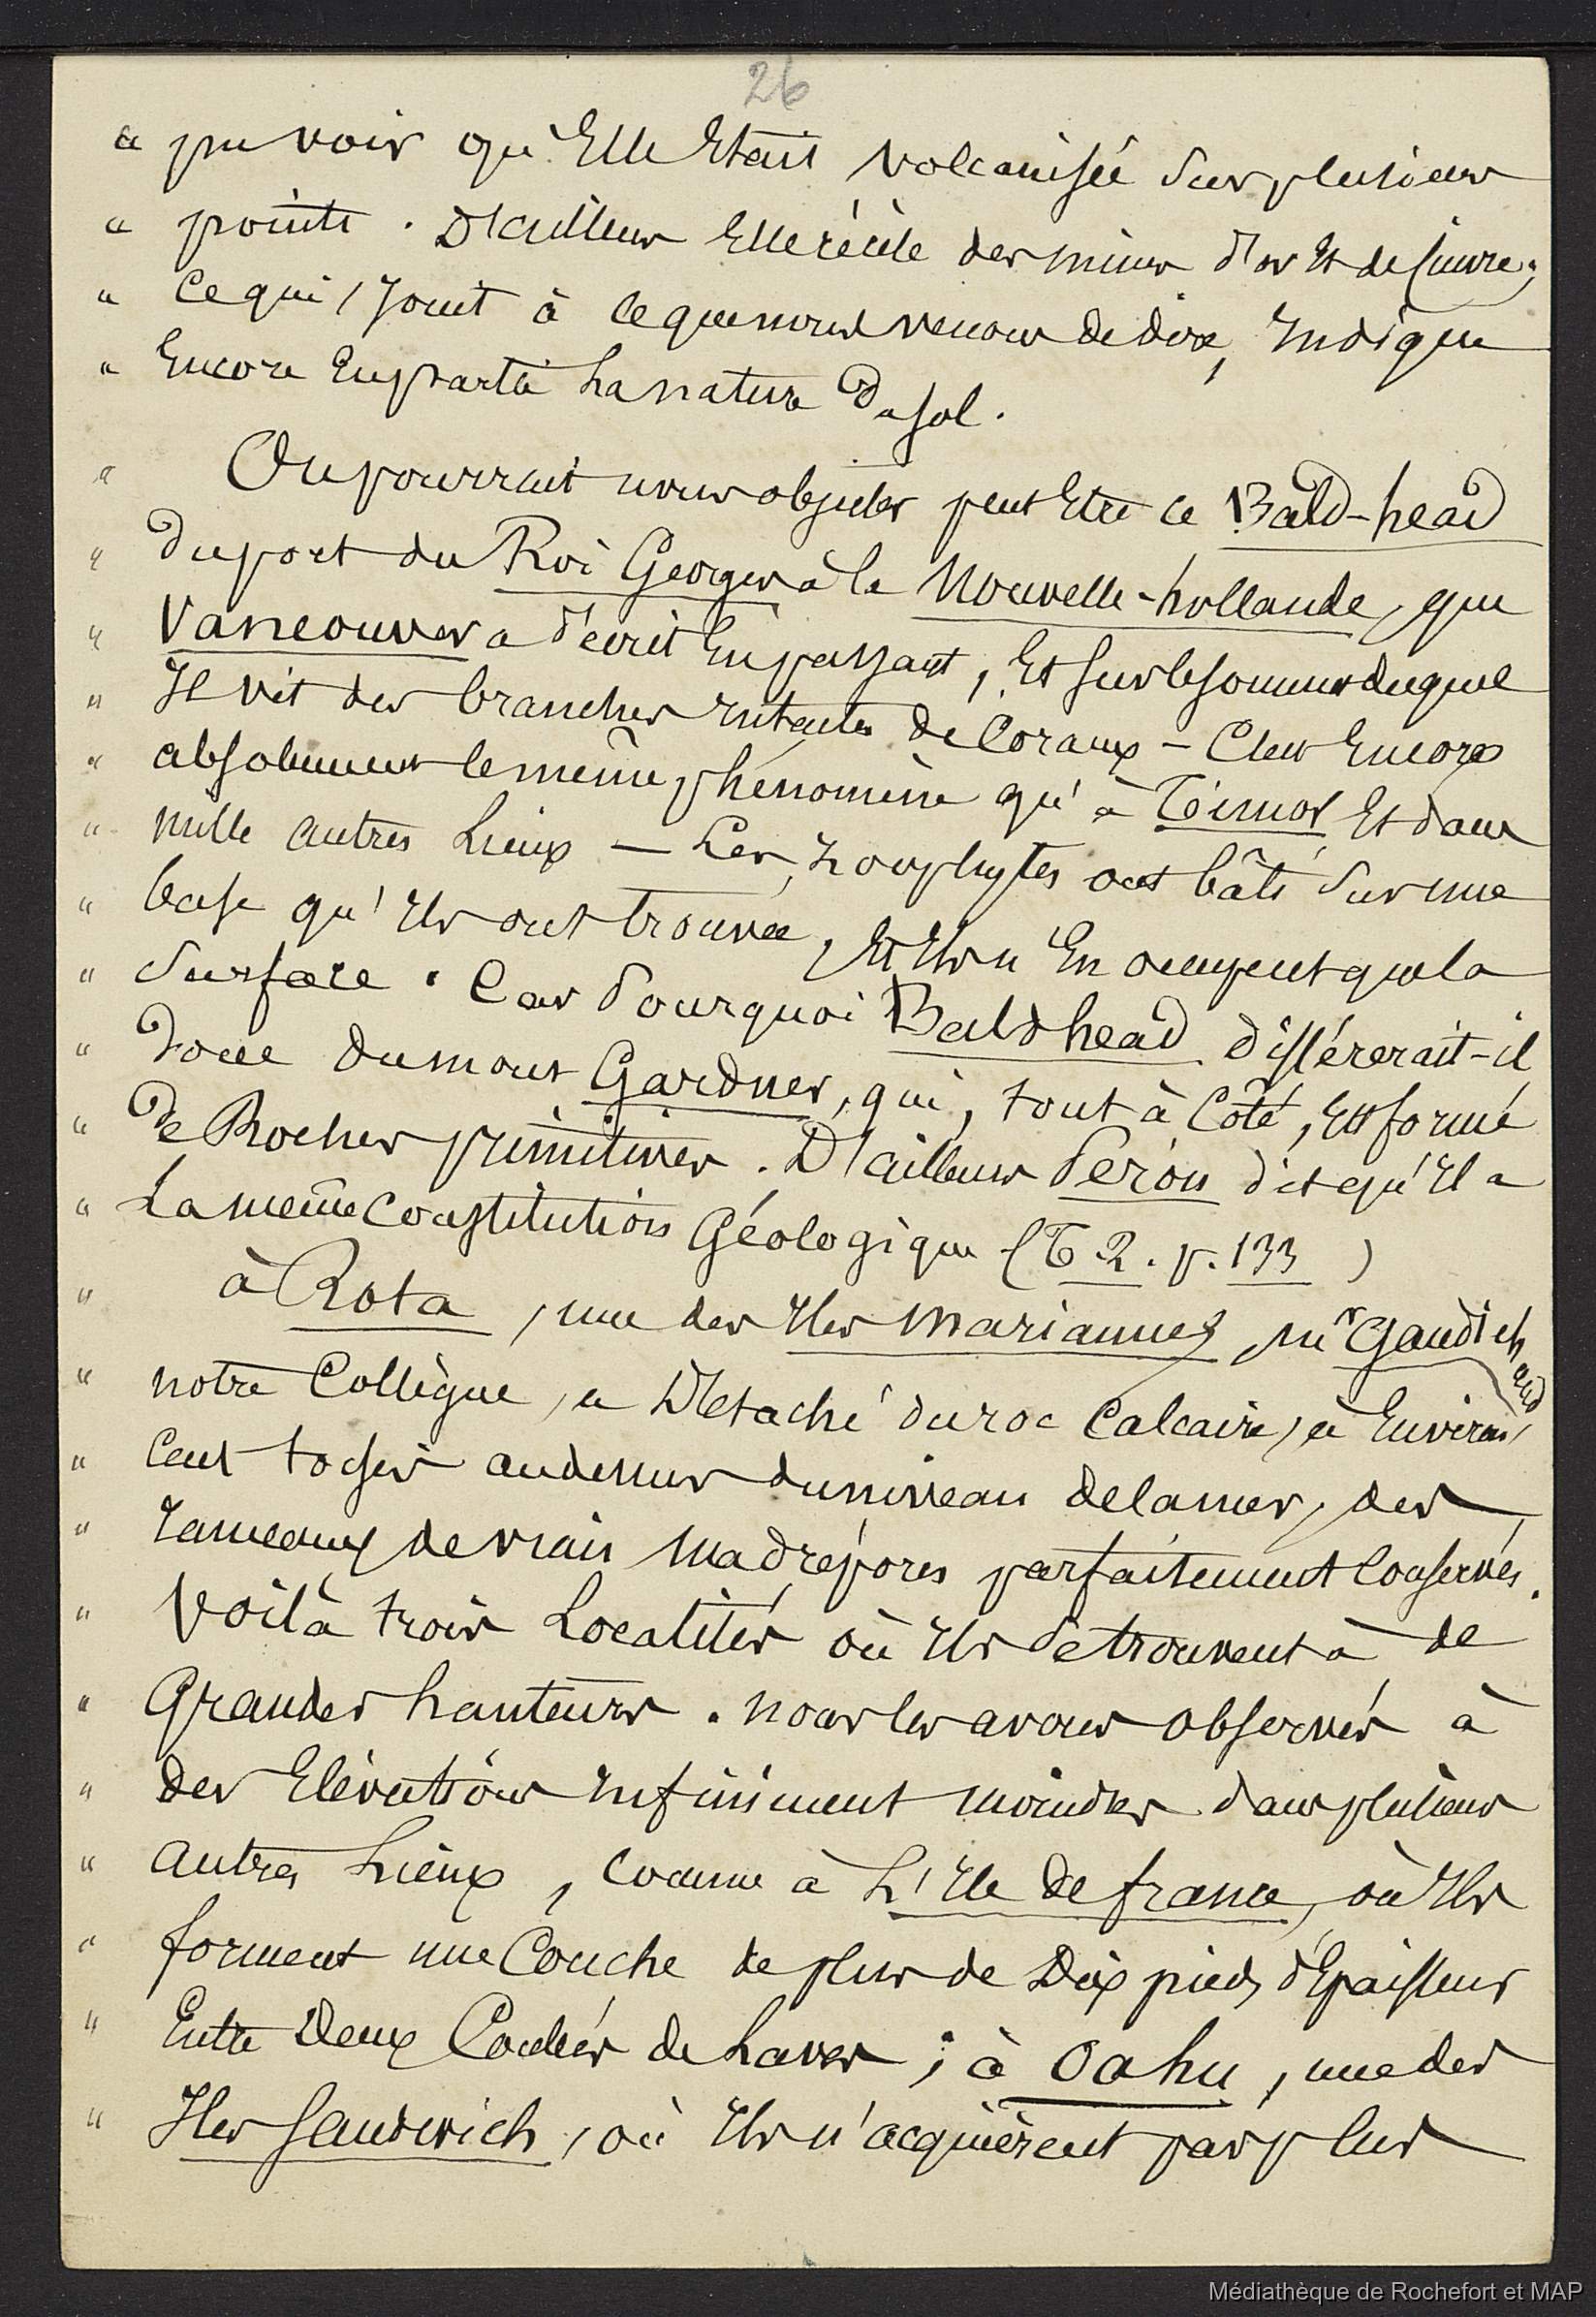 26
" pu voir qu'Elle Etait volcanisée sur plusieurs
" points. D'ailleurs Elle récèle des mines d'or Et de Cuivre;
" Ce qui, Joint à ce que nous venons de dire, Indique
" Encore En partie La nature du sol.
" On pourrait nous objecter peut Etre ce Bald-head
" du port du Roi Georges à la Nouvelle-hollande, que
" Vancouver a décrit En passant, Et sur le sommet duquel
" Il vit des branches Intactes de Coraux - C'est Encore
" absolument le même phénomène qu'à Timor Et dans
" mille autres Lieux — Les zoophytes ont bâti sur une
" base qu'Ils ont trouvée, Et Ils n'En occupent que la
" Surface. Car Pourquoi Baldhead différerait-il
" donc du mont Gardner, qui, tout à Côté, Est formé
" de Roches primitives. D'ailleurs Péron dit qu'Il a
" La même Constitution Géologique (T. 2. p. 133 )
" à Rota, une des Iles Mariannes, Mr Gaudichaud
" notre Collègue, a Détaché du roc Calcaire, à Environ
" Cent toises au dessus du niveau de la mer, des
" rameaux de vrais Madrépores parfaitement Conservés.
" Voilà trois Localités où Ils se trouvent à de
" Grandes hauteurs. nous les avons observés à
" des Elévations Infiniment moindres dans plusieurs
" autres Lieux, comme à L'Ile de france, où Ils
" forment une Couche de plus de Dix pieds d'Epaisseur
" Entre Deux Coulées de Laves; à Oahu, une des
" Iles Sandwich, où Ils n'acquièrent pas plus
Médiathèque de Rochefort et MAP